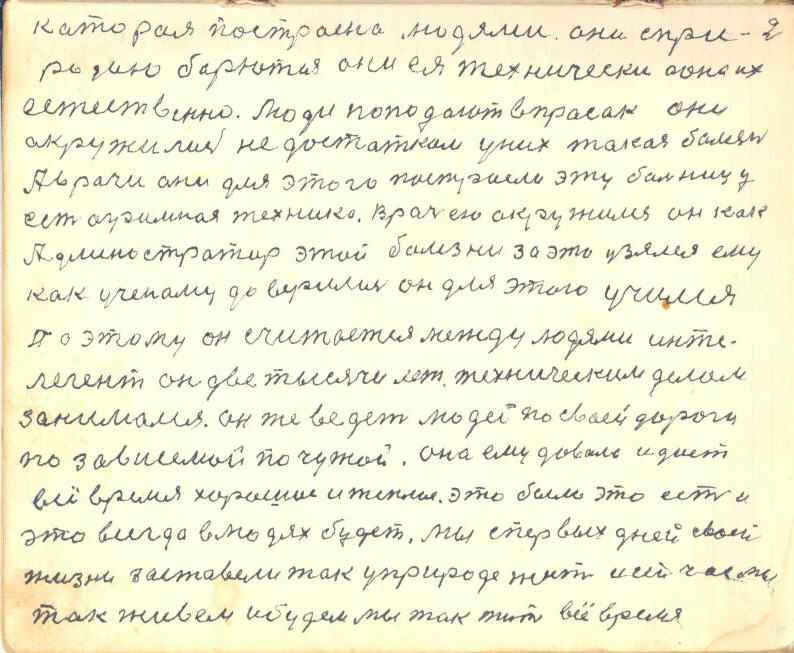 каторая построена людями. они спри- 2
родою барются они ея технически аона их
естественно. Люди поподают впрасак они
окружилия недостатком уних такая балезн
Аврачи они для этого построели эту балницу
ест агримная техника. врач ею окружился он как
Администратор этой болезни заэто узялся ему
как ученаму доверилия он для этого училия
По этому он считается между людями инте-
легент он две тысячи лет. техническим делом
занимался. он же ведет людей по своей дороги
по зависемой по чужой. она ему довала и дает
всё время харошае итеплое. это было это ест и
это всигда влюдях будет. мы спервых дней своей
жизни заставели так уприроде жит исей час мы
так живем ибудем мы так жит всё время